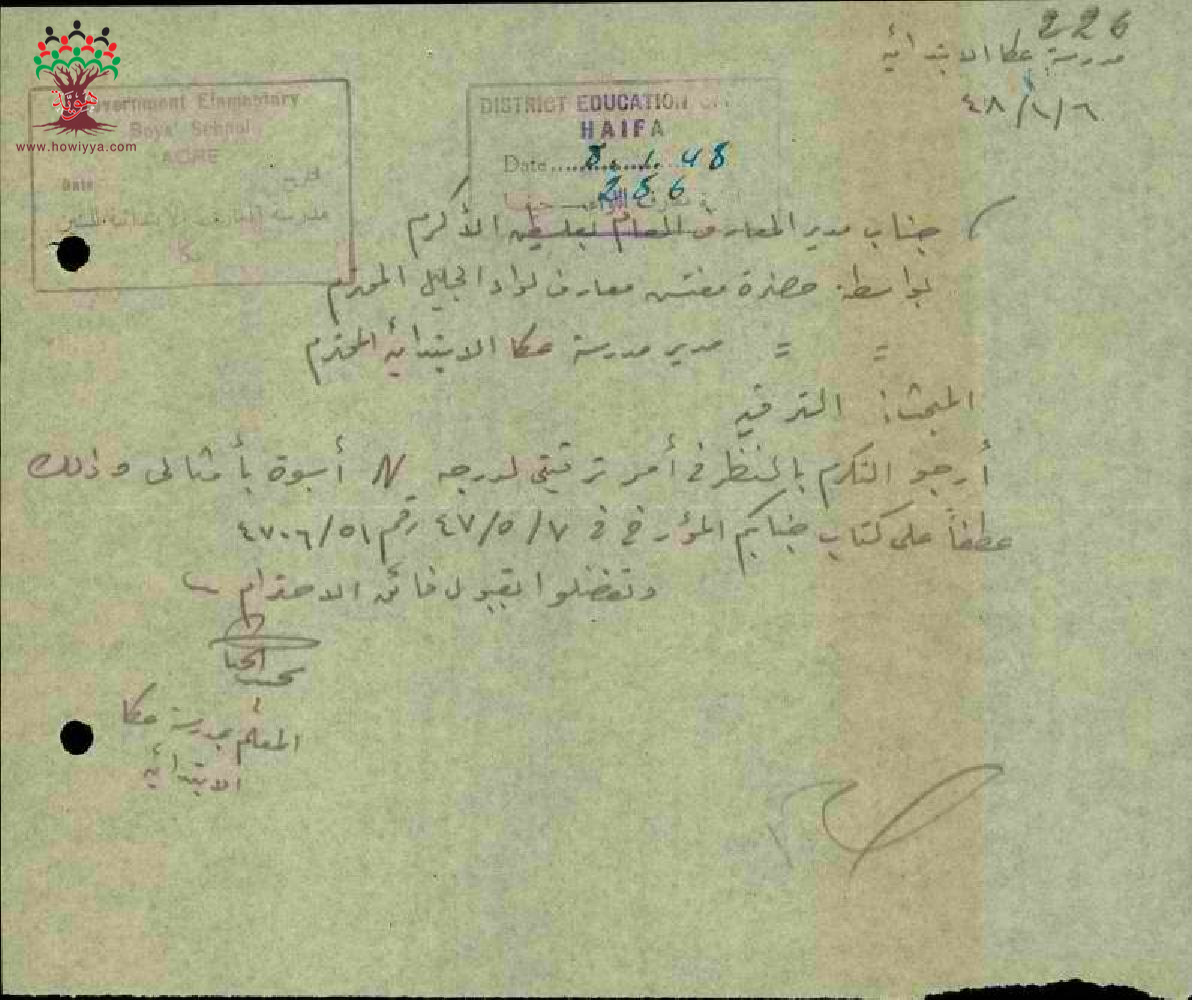 226
مدرسة عكا الابتدائية
٤٨/١/٦
هوية
www.howiyya.com
Government Elementary
Boys' School
ACRE
Date
تاريخ
DISTRICT EDUCATION
HAIFA
Date 8.1.48
256
جناب مدير المعارف العام بفلسطين الأكرم
بواسطة حضرة مفتش معارف لواء الجليل المحترم
= = مدير مدرسة عكا الابتدائية المحترم
المبحث: الترقية
أرجو التكرم بالنظر في أمر ترقيتي لدرجة N أسوة بأمثالي وذلك
عطفاً على كتاب جنابكم المؤرخ في ٤٧/٥/٧ رقم ٤٧٠٦/٥١
وتفضلوا بقبول فائق الاحترام
المعلم بمدرسة عكا
الابتدائية